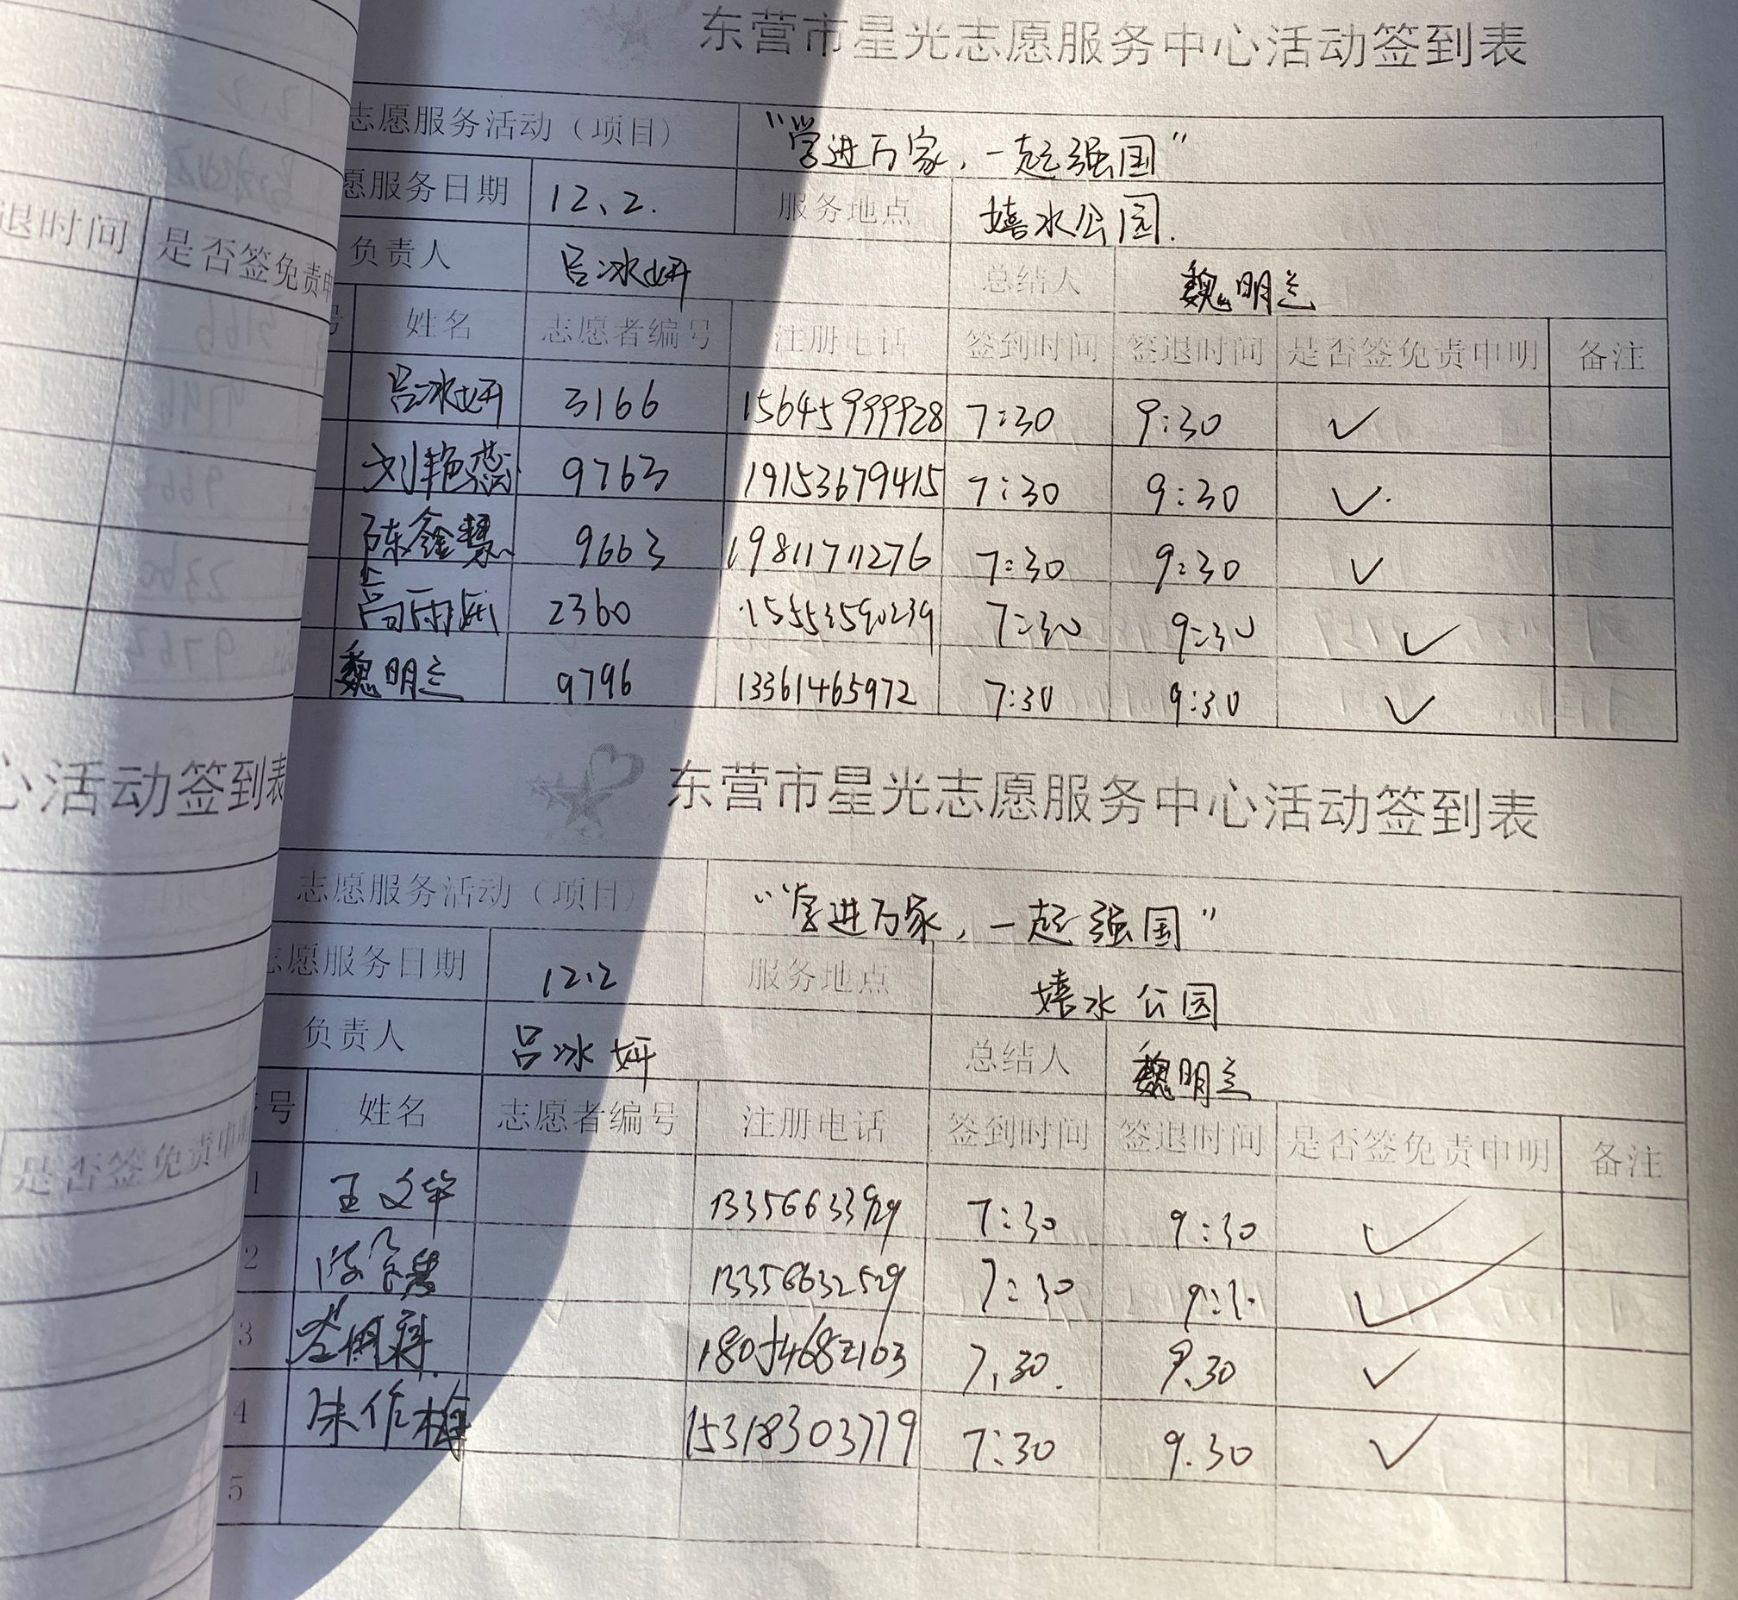 东营市星光志愿服务中心活动签到表
志愿服务活动（项目） “学进万家，一起强国”
愿服务日期 12、2. 服务地点 嬉水公园.
负责人 吕冰妍 总结人 魏明兰
号 姓名 志愿者编号 注册电话 签到时间 签退时间 是否签免责申明 备注
吕冰妍 3166 15645999928 7:30 9:30 ✓
刘艳蕊 9763 19153679415 7:30 9:30 ✓
陈鑫慧 9663 19811711276 7:30 9:30 ✓
高雨 2360 15553590239 7:30 9:30 ✓
魏明兰 9796 13361465972 7:30 9:30 ✓
东营市星光志愿服务中心活动签到表
志愿服务活动（项目） “学进万家，一起强国”
志愿服务日期 12.2 服务地点 嬉水公园
负责人 吕冰妍 总结人 魏明兰
号 姓名 志愿者编号 注册电话 签到时间 签退时间 是否签免责申明 备注
1 王文华 7:30 9:30 ✓
2 13356632529 7:30 ✓
3 18054682163 7.30. 9.30 ✓
4 朱作梅 15318303779 7:30 9.30 ✓
5
退时间 是否签免责申
心活动签到表
是否签免责申明